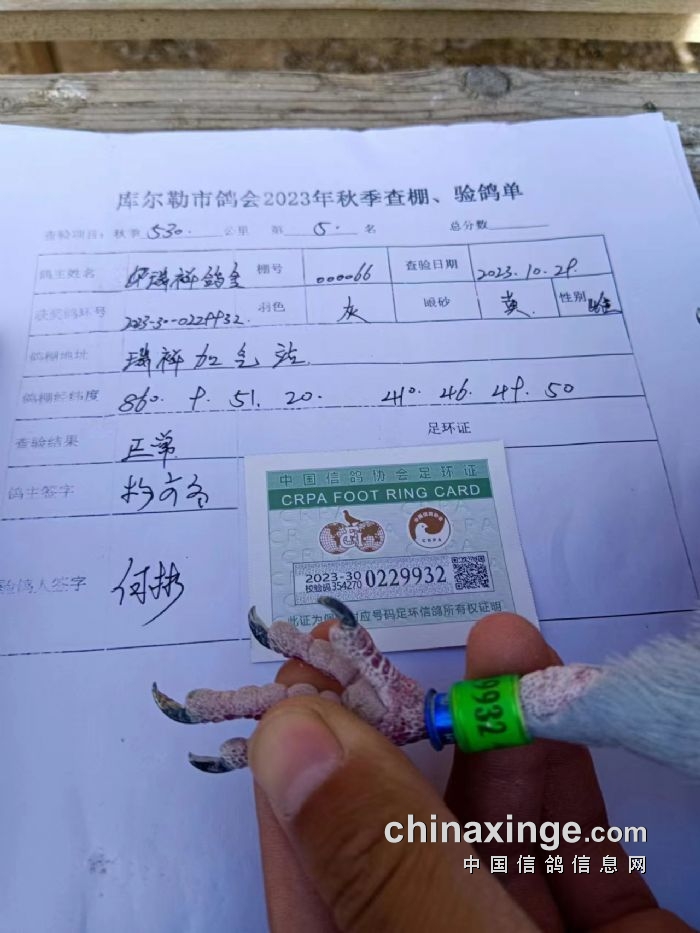 库尔勒市鸽会2023年秋季查棚、验鸽单
查验项目: 秋季 530. 公里 第 5. 名 总分数
鸽主姓名 瑞祥鸽舍 棚号 000066 查验日期 2023.10.29.
获奖鸽环号 2023-30-0229932. 羽色 灰 眼砂 黄 性别 雄
鸽棚地址 瑞祥加气站
鸽棚经纬度 860. 9. 51. 20. 410. 46. 49. 50
查验结果 正常 足环证
鸽主签字
验鸽人签字
中国信鸽协会足环证
CRPA FOOT RING CARD
CRPA
2023-30 0229932
校验码354270
此证为 对应号码足环信鸽所有权证明
9932
chinaxinge.com
中国信鸽信息网